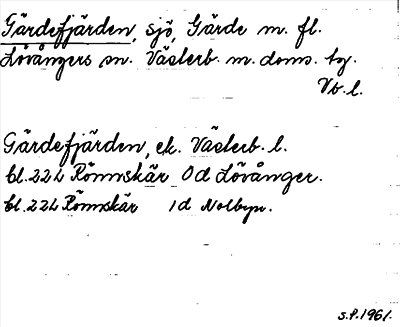 Gärdefjärden, sjö, Gärde m. fl.
Lövångers sn. Västerb. m. doms. tg.
Vb. l.
Gärdefjärden, ek. Västerb. l.
bl. 22L Rönnskär 0d Lövånger.
bl. 22L Rönnskär 1d Nolbyn.
S.P. 1961.